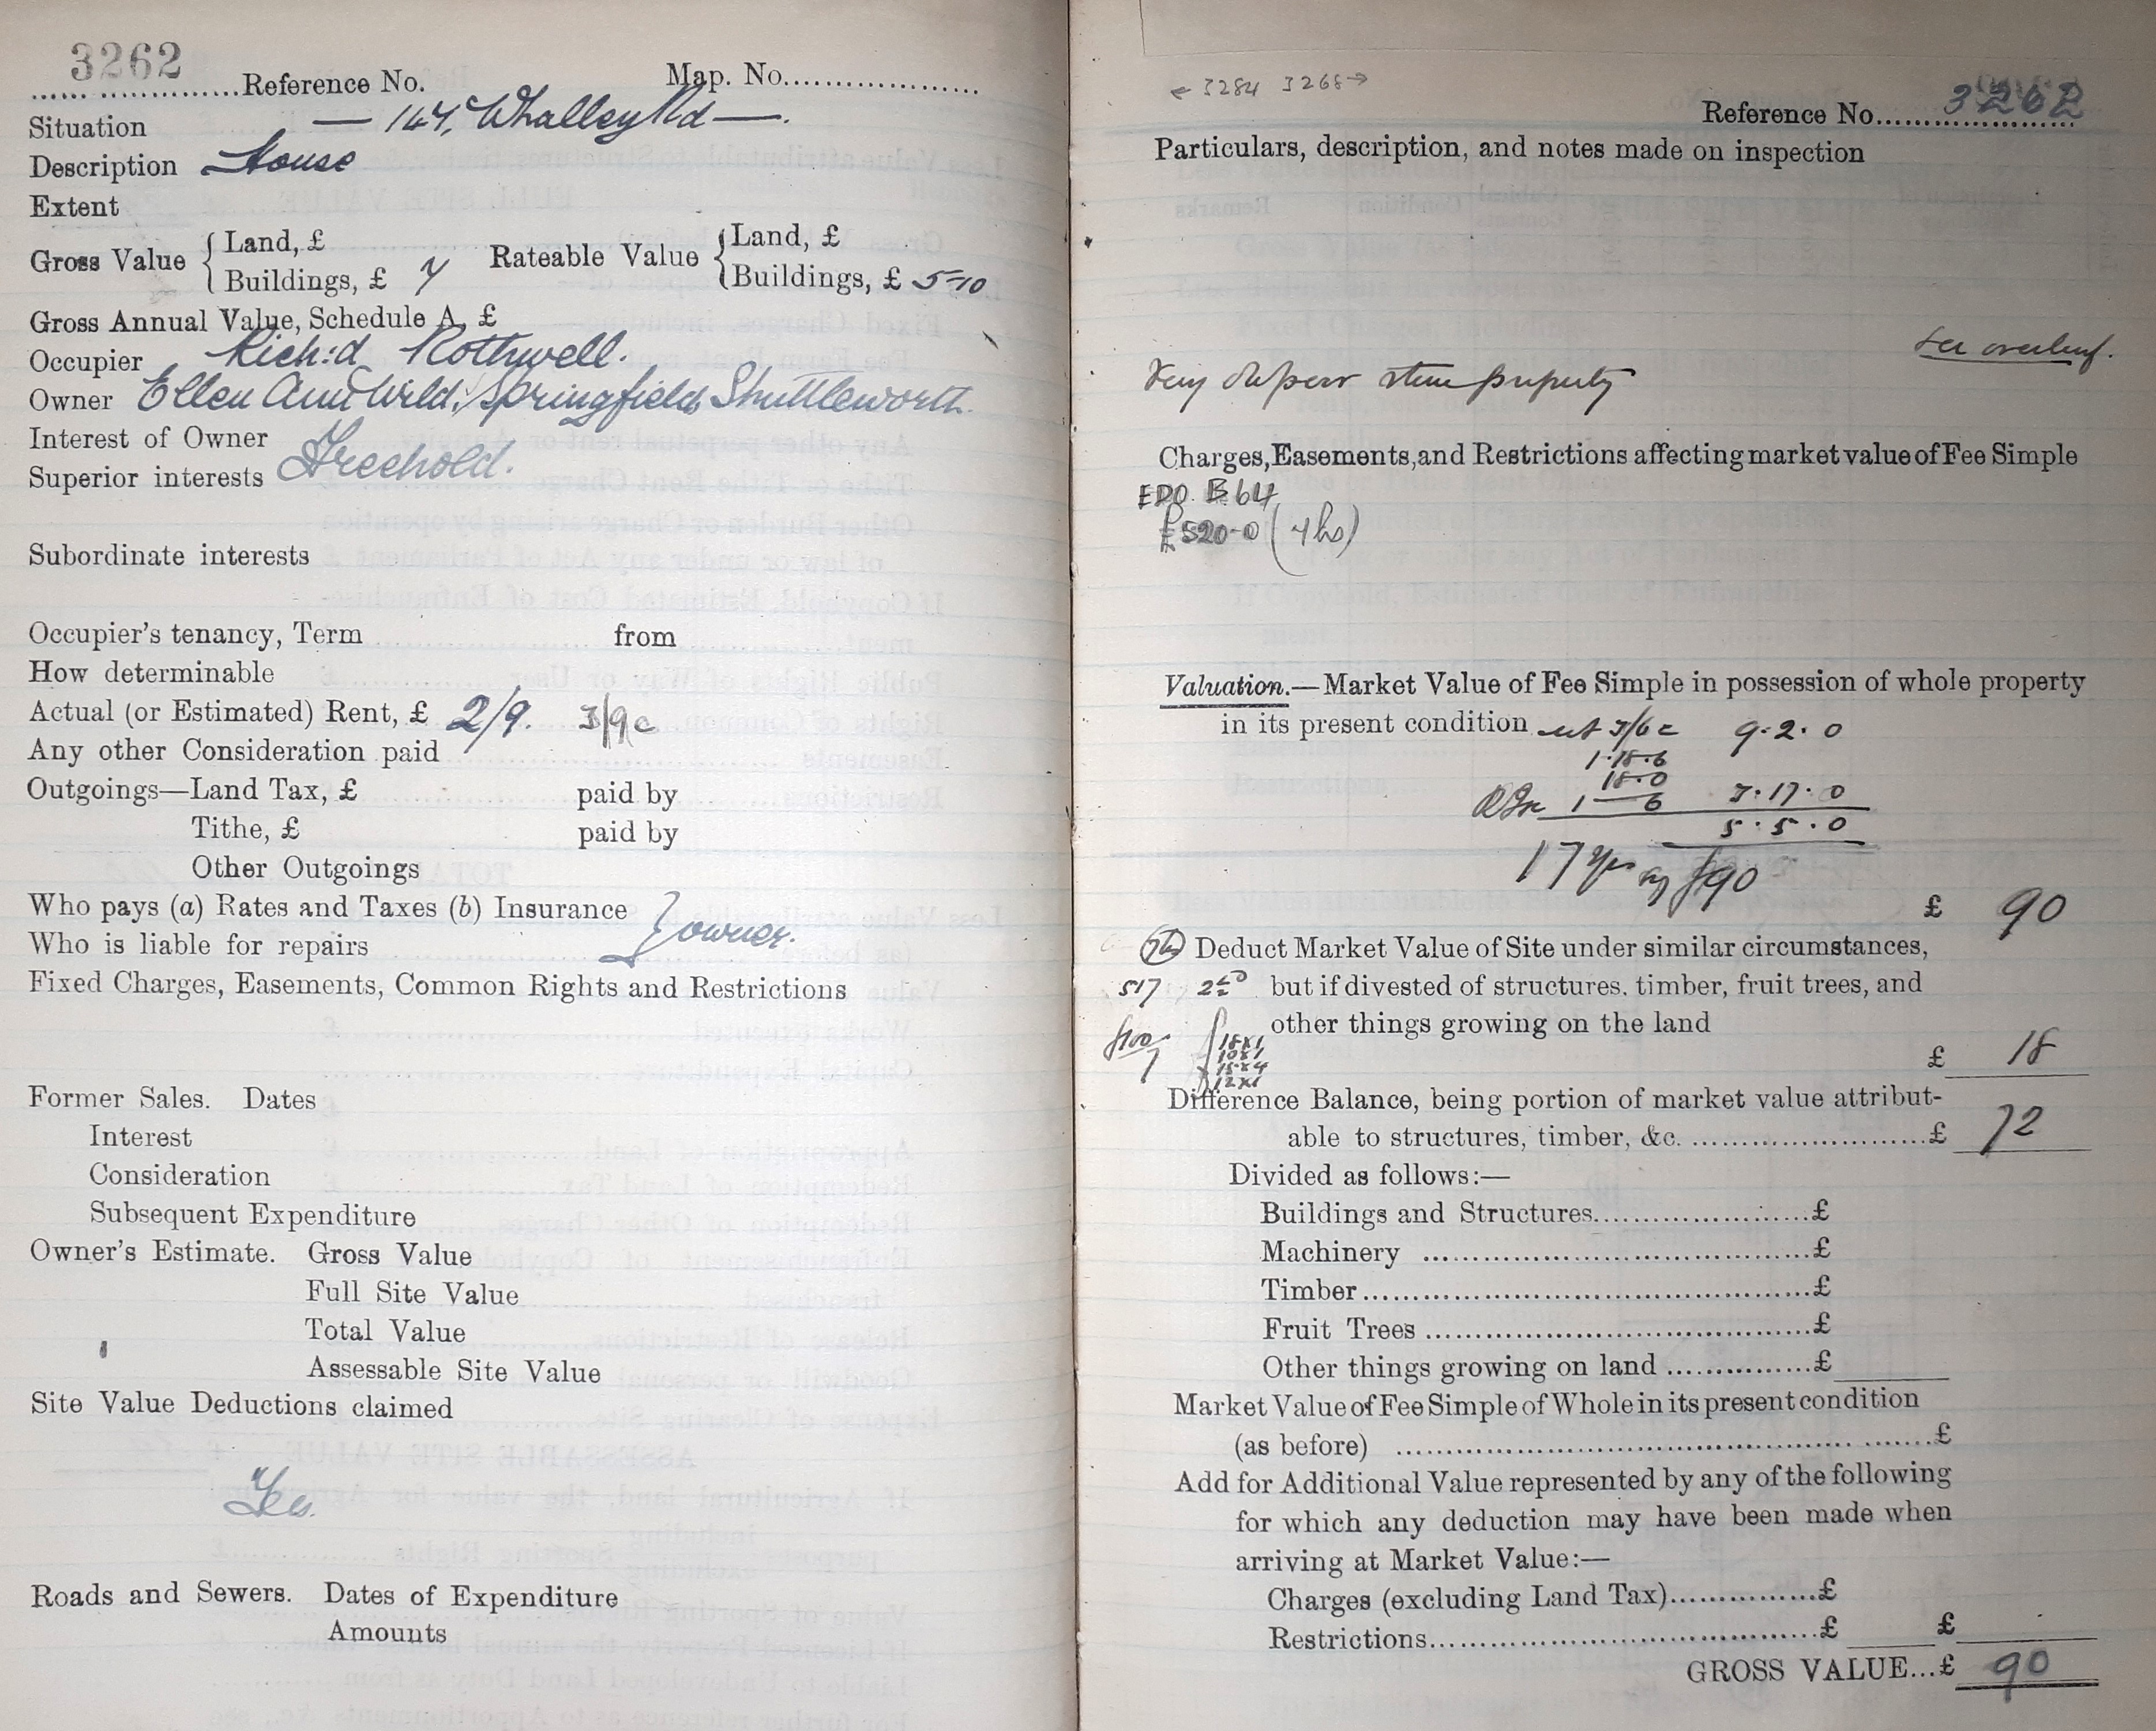 3262
Reference No. Map. No.
Situation — 147, Whalley Rd —.
Description House
Extent
Gross Value { Land, £ Rateable Value { Land, £
Buildings, £ 7 Buildings, £ 5-10
Gross Annual Value, Schedule A, £
Occupier Rich:d Rothwell.
Owner Ellen Ann Wild, Springfield, Shuttleworth.
Interest of Owner
Superior interests Freehold.
Subordinate interests
Occupier's tenancy, Term from
How determinable
Actual (or Estimated) Rent, £ 2/9. 3/9c
Any other Consideration paid
Outgoings—Land Tax, £ paid by
Tithe, £ paid by
Other Outgoings
Who pays (a) Rates and Taxes (b) Insurance } owner.
Who is liable for repairs
Fixed Charges, Easements, Common Rights and Restrictions
Former Sales. Dates
Interest
Consideration
Subsequent Expenditure
Owner's Estimate. Gross Value
Full Site Value
Total Value
Assessable Site Value
Site Value Deductions claimed
Yes.
Roads and Sewers. Dates of Expenditure
Amounts
← 3284 3268 →
Reference No. 3262
Particulars, description, and notes made on inspection
See overleaf.
Very old poor stone property
Charges, Easements, and Restrictions affecting market value of Fee Simple
EDO. B64
£520-0 (4 hs)
Valuation.—Market Value of Fee Simple in possession of whole property
in its present condition 3/6c 9.2.0
1.18.6
18.0
1—6 3.17.0
5.5.0
17 yrs £90
£ 90
Deduct Market Value of Site under similar circumstances,
517 but if divested of structures, timber, fruit trees, and
other things growing on the land
£100/7
18x1
10x1
15x4
12x1
£ 18
Difference Balance, being portion of market value attribut-
able to structures, timber, &c. £ 72
Divided as follows:—
Buildings and Structures £
Machinery £
Timber £
Fruit Trees £
Other things growing on land £
Market Value of Fee Simple of Whole in its present condition
(as before) £
Add for Additional Value represented by any of the following
for which any deduction may have been made when
arriving at Market Value:—
Charges (excluding Land Tax) £
Restrictions £ £
GROSS VALUE...£ 90